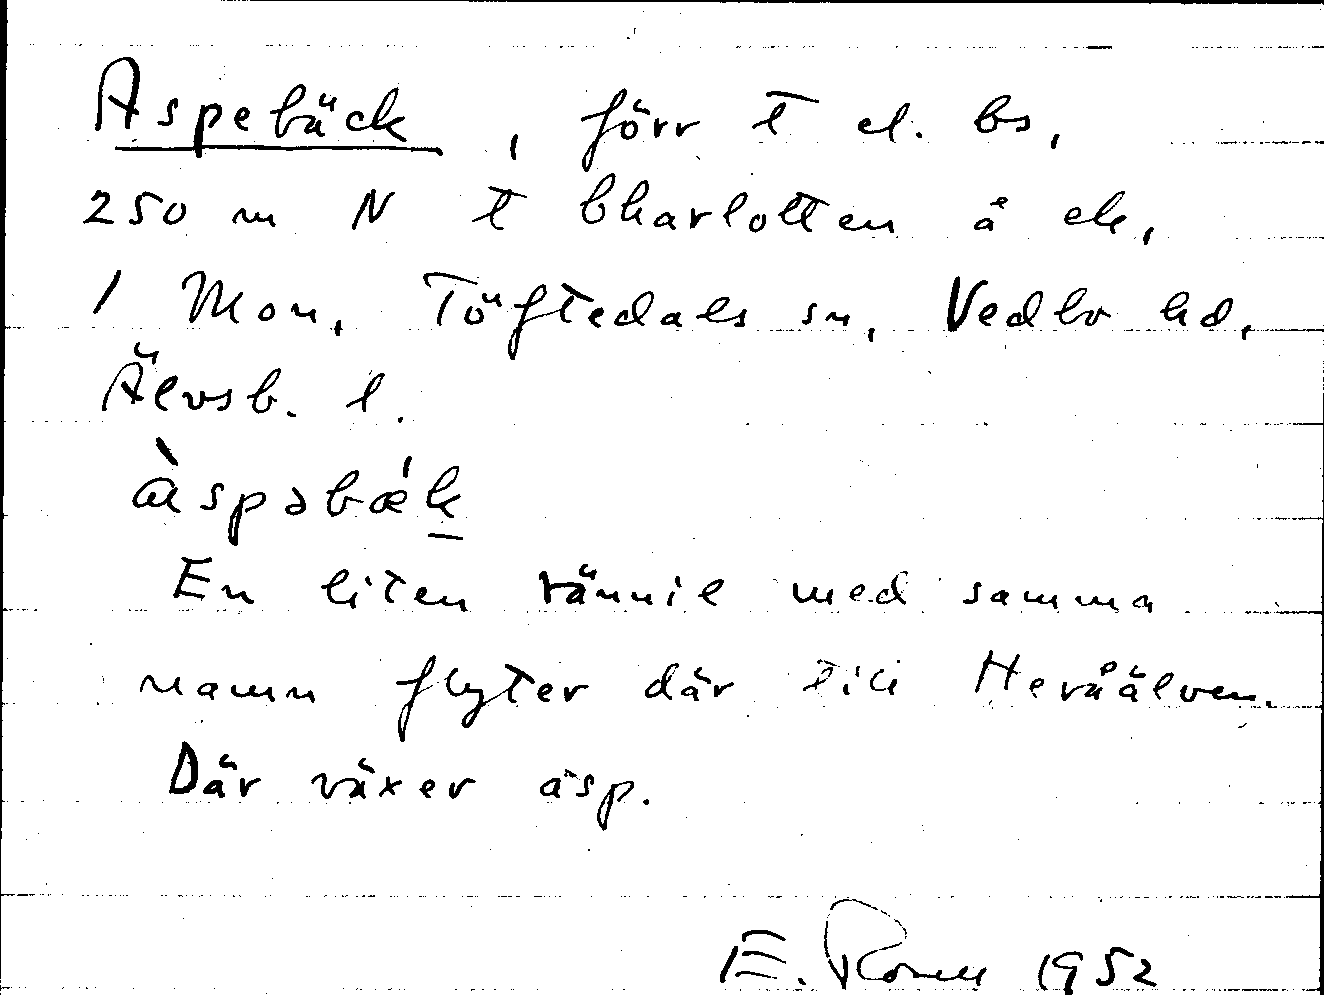 Aspebäck, förr t el. bs,
250 m N t Charlotten å ek,
1 Mon, Töftedals sn, Vedbo hd,
Älvsb. l.
àspəbǽk
En liten rännil med samma
namn flyter där till Heråälven.
Där växer asp.
E. 1952